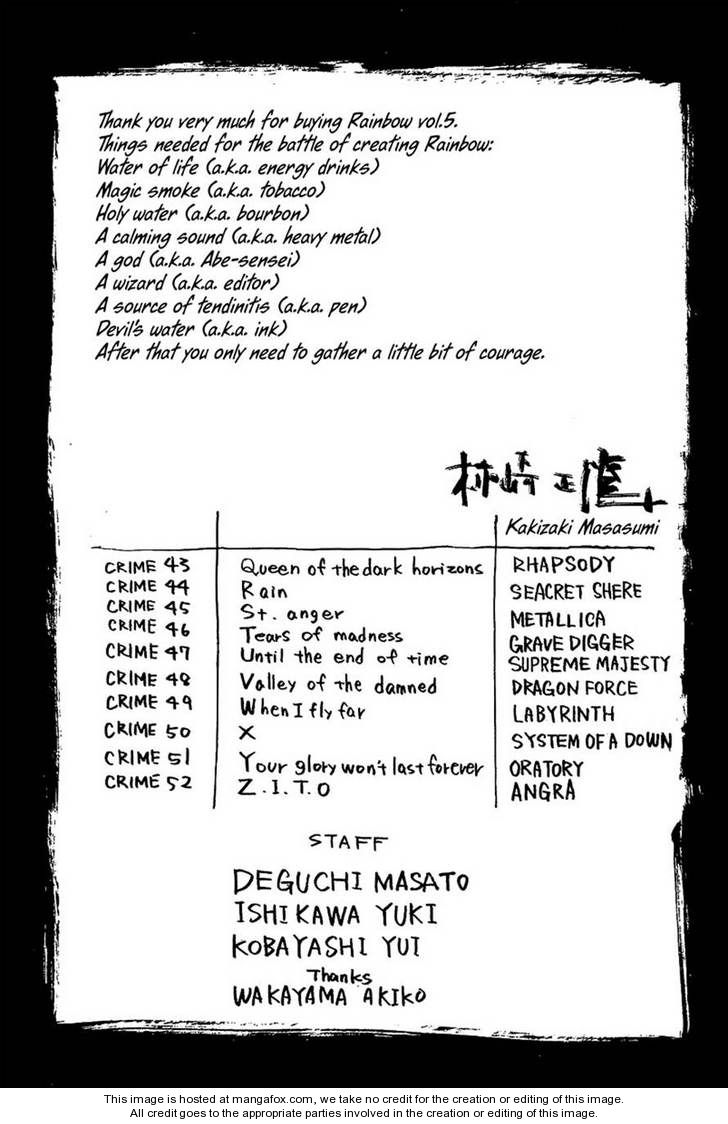 Thank you very much for buying Rainbow vol.5.
Things needed for the battle of creating Rainbow:
Water of life (a.k.a. energy drinks)
Magic smoke (a.k.a. tobacco)
Holy water (a.k.a. bourbon)
A calming sound (a.k.a. heavy metal)
A god (a.k.a. Abe-sensei)
A wizard (a.k.a. editor)
A source of tendinitis (a.k.a. pen)
Devil's water (a.k.a. ink)
After that you only need to gather a little bit of courage.
柿崎正澄
Kakizaki Masasumi
CRIME 43 Queen of the dark horizons RHAPSODY
CRIME 44 Rain SEACRET SHERE
CRIME 45 St. anger METALLICA
CRIME 46 Tears of madness GRAVE DIGGER
CRIME 47 Until the end of time SUPREME MAJESTY
CRIME 48 Valley of the damned DRAGON FORCE
CRIME 49 When I fly far LABYRINTH
CRIME 50 X SYSTEM OF A DOWN
CRIME 51 Your glory won't last forever ORATORY
CRIME 52 Z.I.T.O ANGRA
STAFF
DEGUCHI MASATO
ISHIKAWA YUKI
KOBAYASHI YUI
Thanks
WAKAYAMA AKIKO
This image is hosted at mangafox.com, we take no credit for the creation or editing of this image.
All credit goes to the appropriate parties involved in the creation or editing of this image.